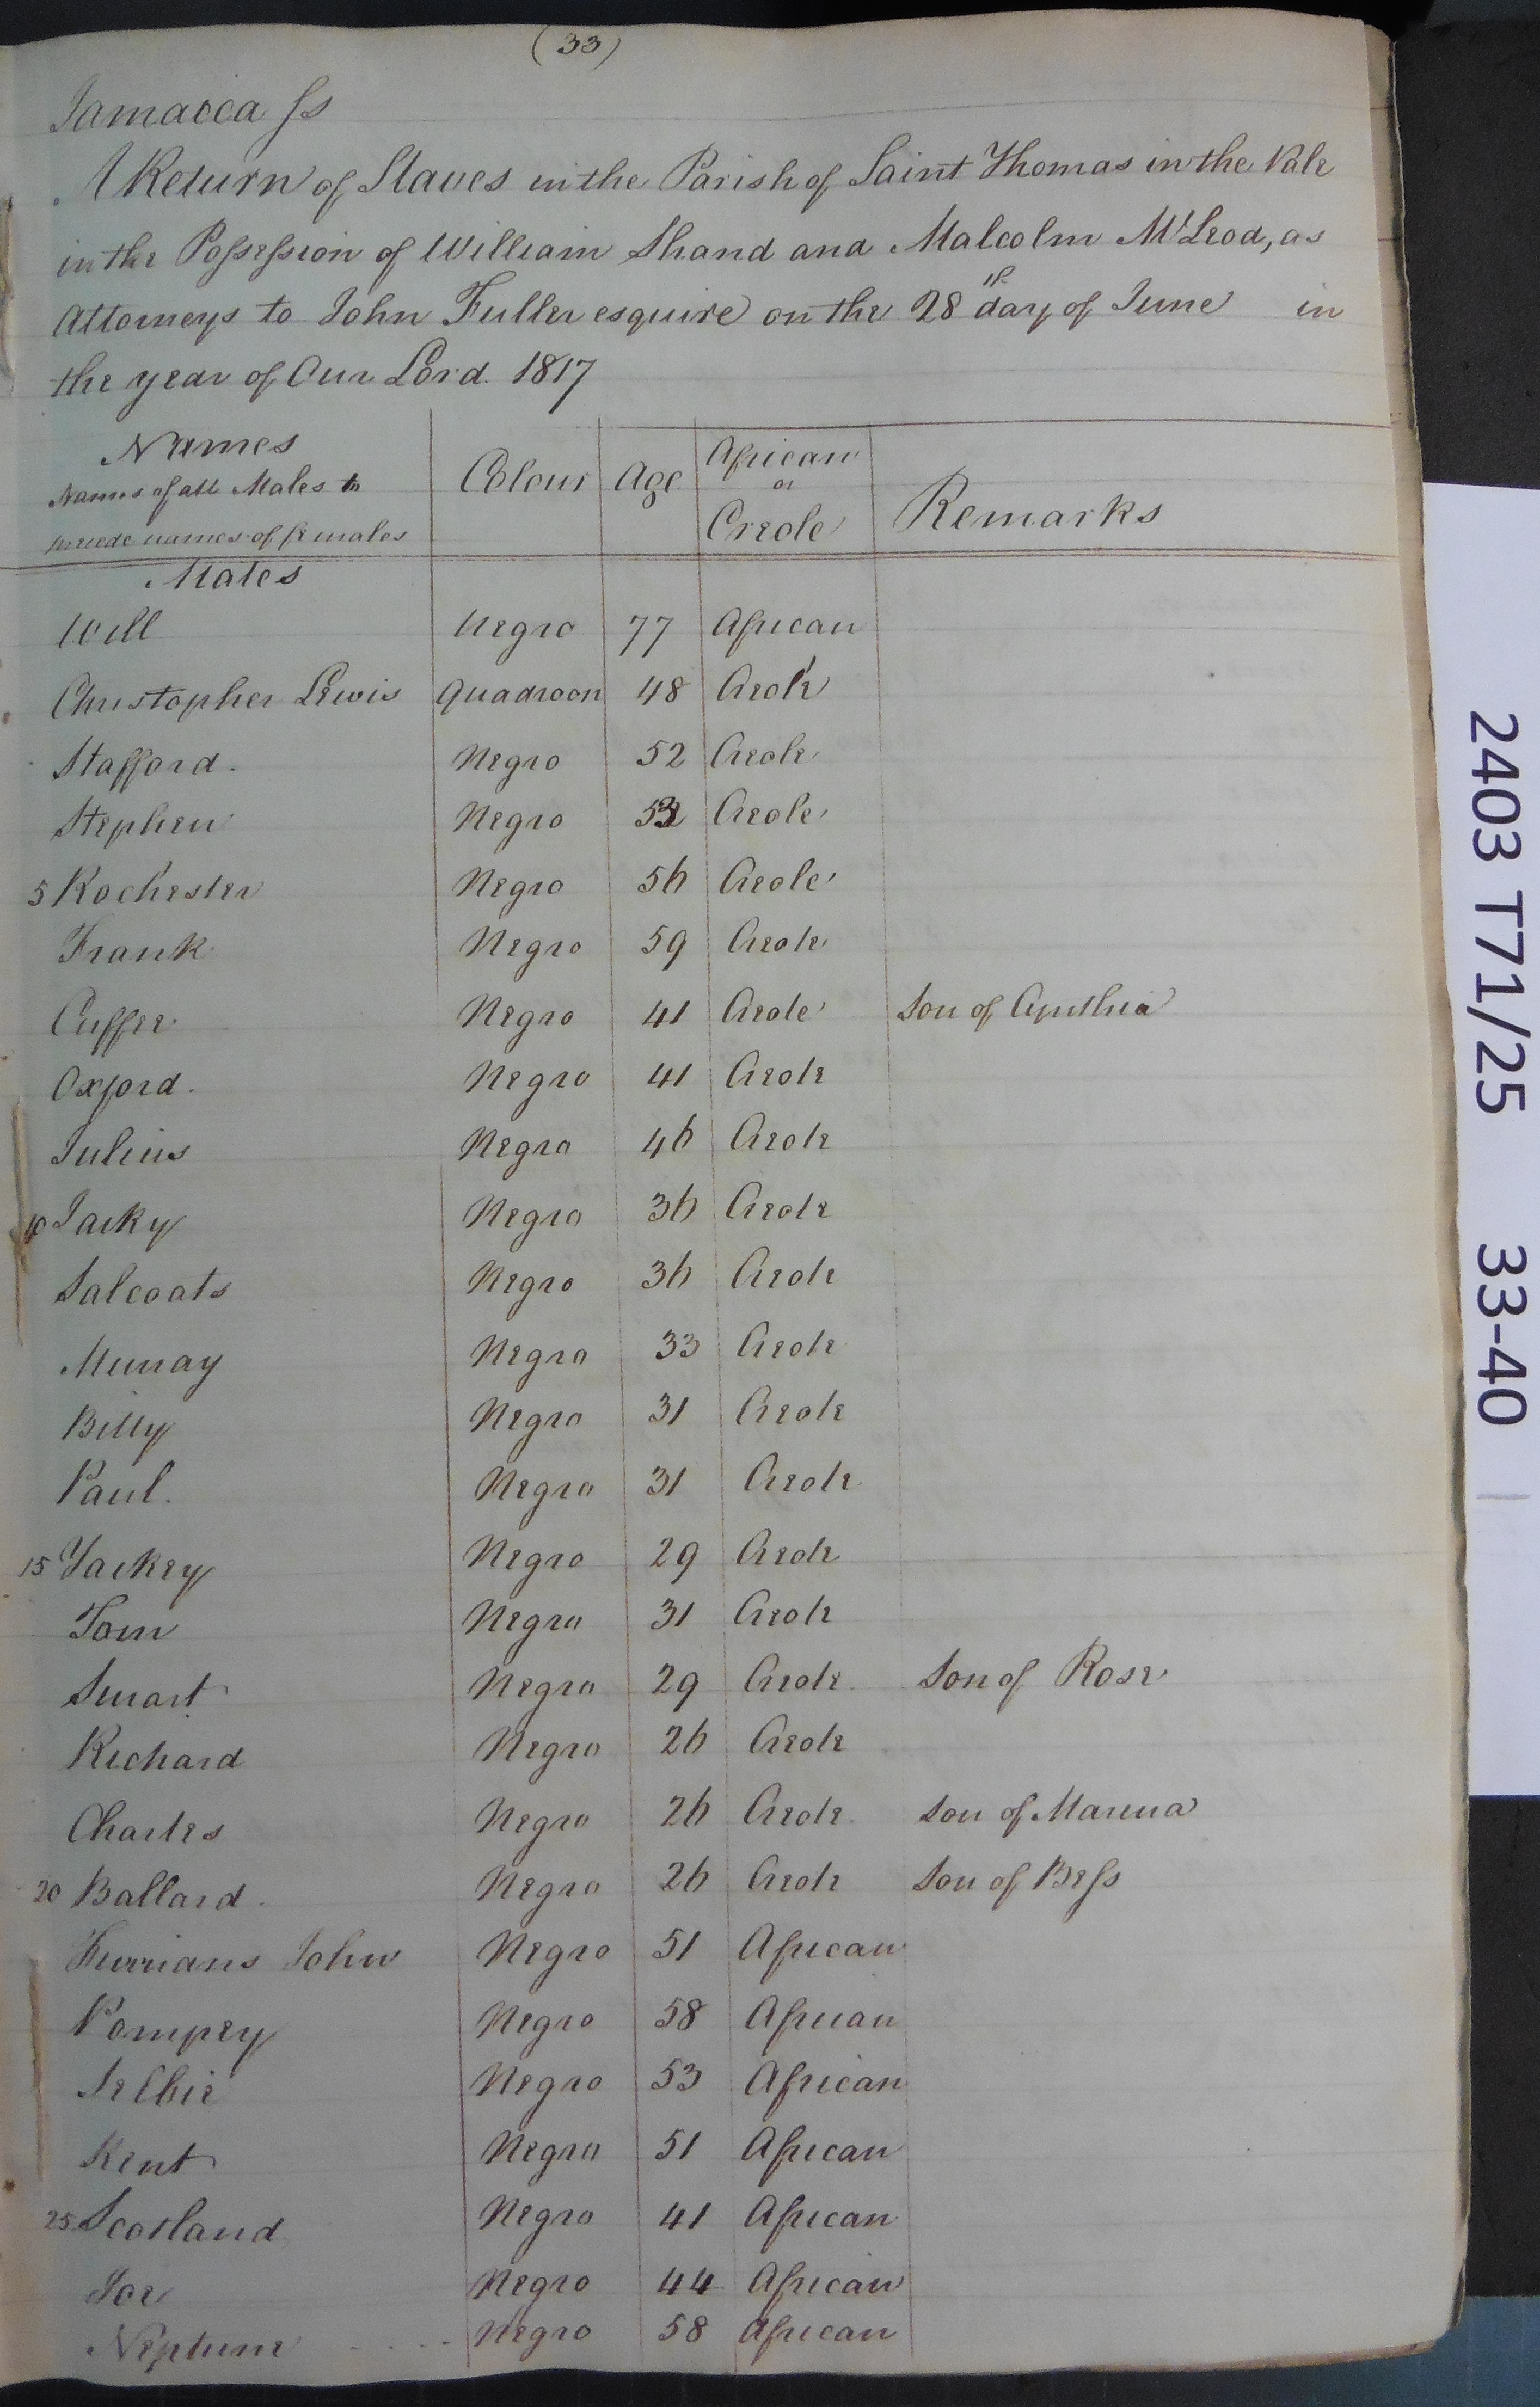 (33)
Jamaica ss
A Return of Slaves in the Parish of Saint Thomas in the Vale
in the Possession of William Shand and Malcolm McLeod, as
Attorneys to John Fuller esquire on the 28th day of June in
the year of Our Lord. 1817
Names
Names of all Males to
precede names of females
Colour Age African or Creole Remarks
Males
Will Negro 77 African
Christopher Lewis Quadroon 48 Creole
Stafford. Negro 52 Creole
Stephen Negro Creole
5 Rochester Negro 56 Creole
Frank Negro 59 Creole
Cuffee Negro 41 Creole Son of Cynthia
Oxford. Negro 41 Creole
Julius Negro 46 Creole
10 Jacky Negro 36 Creole
Salcoats Negro 36 Creole
Murray Negro 33 Creole
Billy Negro 31 Creole
Paul. Negro 31 Creole
15 Yackey Negro 29 Creole
Tom Negro 31 Creole
Smart Negro 29 Creole Son of Rose
Richard Negro 26 Creole
Charles Negro 26 Creole Son of Marina
20 Ballard. Negro 26 Creole Son of Bess
John Negro 51 African
Pompey Negro 58 African
Negro 53 African
Kent Negro 51 African
25 Scotland Negro 41 African
Joe Negro 44 African
Neptune Negro 58 African
2403 T71/25 33-40